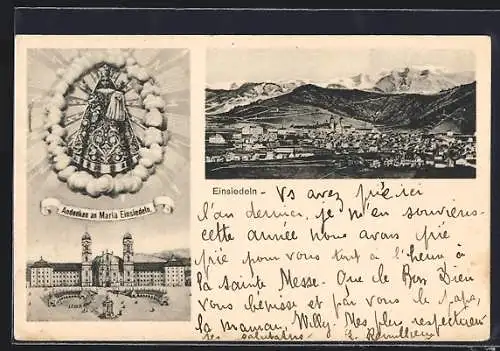 Andenken an Maria Einsiedeln.
Einsiedeln -
Vs avez prié ici
l'an dernier, je m'en souviens -
cette année nous avons prié
prié pour vous tout à l'heure à
la sainte Messe. Que le Bon Dieu
vous bénisse et par vous le papa,
la maman, Willy. Mes plus respectueuses
salutations